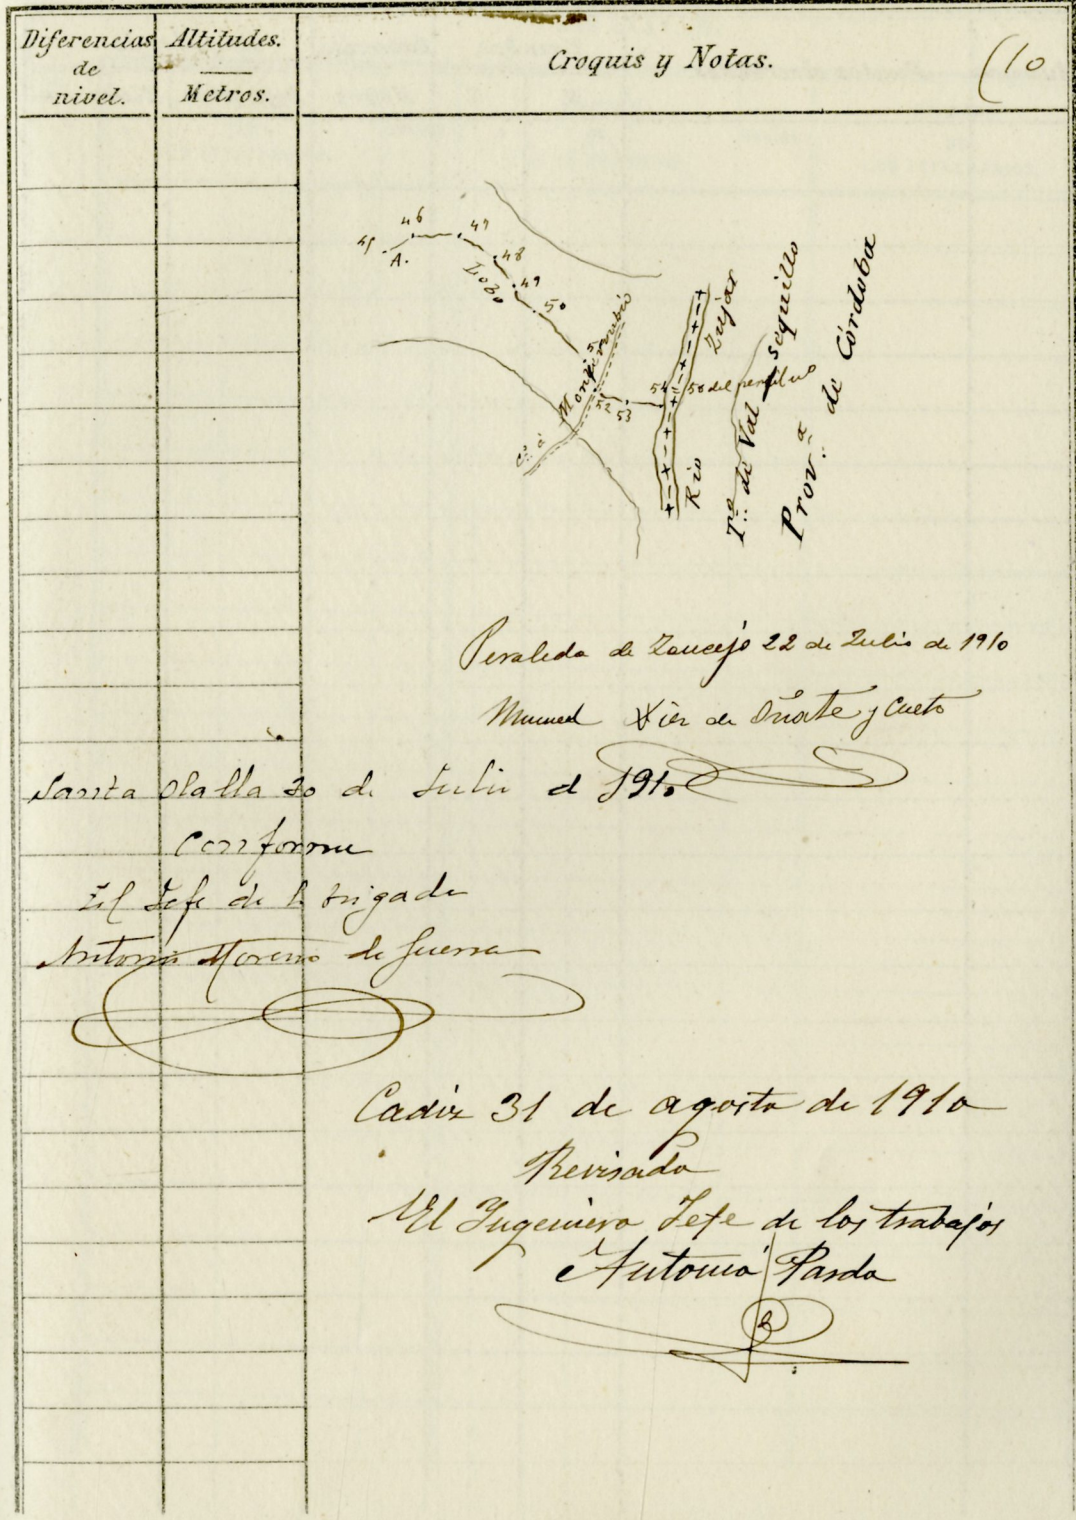 Diferencias de nivel.
Altitudes.
Metros.
Croquis y Notas.
(10
45
46
47
A.
48
Lobo
49
50
51
Cº. á Monterrubio
52
53
54 = 50 del
Rio Zujar
Tº. de Valsequillo
Prov.ª de Córdoba
Peraleda de Zaucejo 22 de Julio de 1910
Manuel de Oñate y Cueto
Santa Olalla 30 de Julio d 1910
Conforme
El Jefe de la brigada
Antonio Moreno de Guerra
Cadiz 31 de agosto de 1910
Revisado
El Ingeniero Jefe de los trabajos
Antonio Pardo